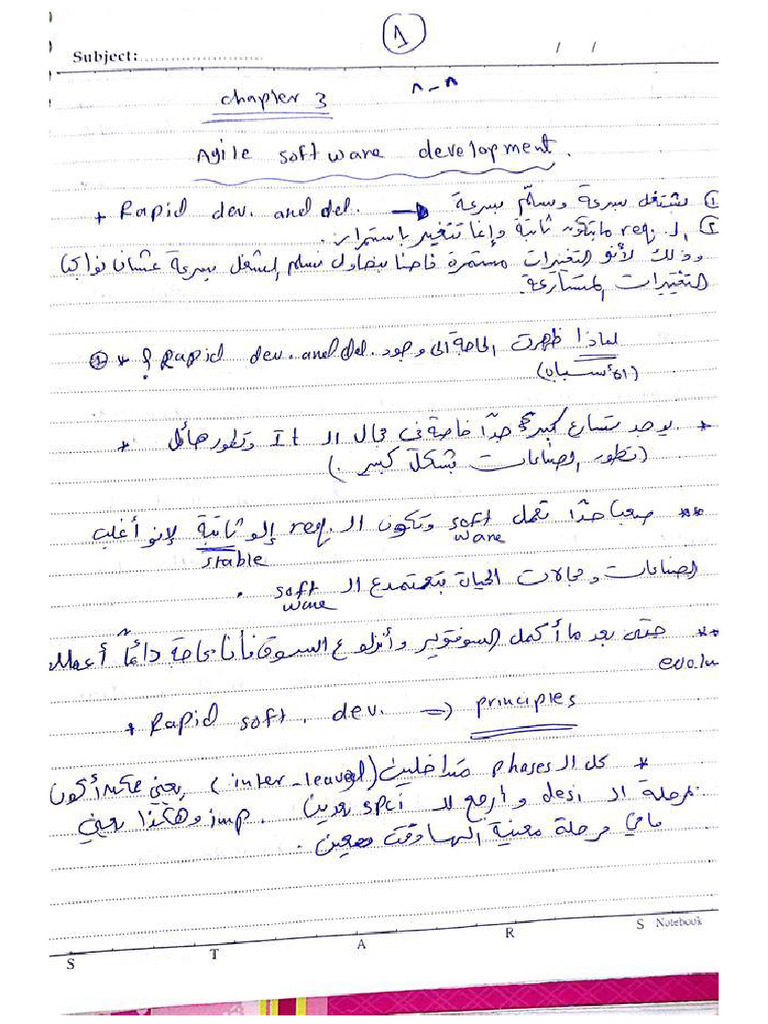 1
Subject: / /
chapter 3 ^-^
Agile software development.
+ Rapid dev. and del. → ① نشتغل بسرعة ونسلّم بسرعة
② الـ req. ما بتكون ثابتة وإنما تتغير باستمرار.
وذلك لأنو التغيرات مستمرة فاحنا بنحاول نسلم الشغل بسرعة عشان نواكب
التغييرات المتسارعة.
* لماذا ظهرت الحاجة الى وجود Rapid dev. and del. ؟
(الأسباب)
* يوجد تسارع كبير جدًا خاصة في مجال الـ It وتطور هائل *
(تطور الصناعات بشكل كبير.)
** صعب جدًا نعمل software وتكون الـ req. إلو ثابتة لإنو أغلب
stable
الصناعات ومجالات الحياة بتعتمد ع الـ software.
** حتى بعد ما أكمل السوفتوير وأنزلو ع السوق فأنا بحاجة دائمًا أعمله
evolu
+ Rapid soft. dev. => principles
* كل الـ phases متداخلين (inter-leaved) يعني ممكن أكون
بمرحلة الـ desi وأرجع لـ speci بعدين imp. وهكذا يعني
ما في مرحلة معينة إلها وقت معين.
S T A R S Notebook